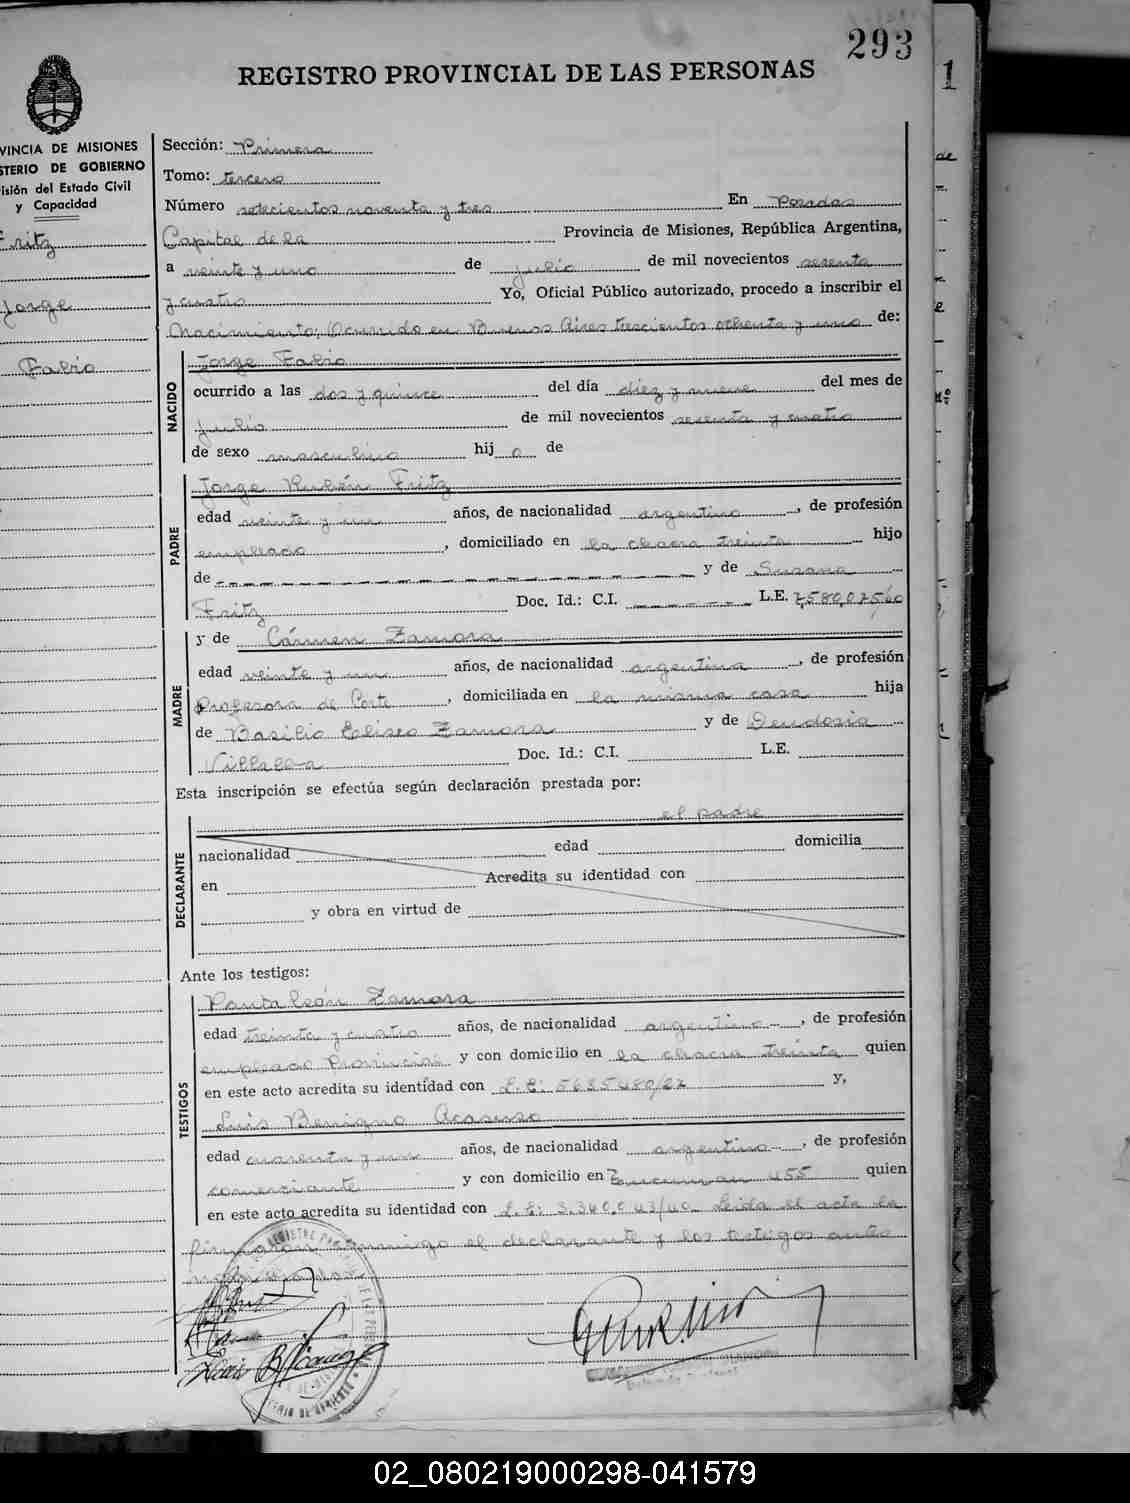 293
REGISTRO PROVINCIAL DE LAS PERSONAS
1
VINCIA DE MISIONES
STERIO DE GOBIERNO
isión del Estado Civil
y Capacidad
Fritz
Jorge
Fabio
Sección: Primera
Tomo: tercero
Número setecientos noventa y tres En Posadas
Capital de la Provincia de Misiones, República Argentina,
a veinte y uno de julio de mil novecientos sesenta
y cuatro Yo, Oficial Público autorizado, procedo a inscribir el
Nacimiento: Ocurrido en Buenos Aires trescientos ochenta y uno de:
NACIDO
Jorge Fabio
ocurrido a las dos y quince del día diez y nueve del mes de
julio de mil novecientos sesenta y cuatro
de sexo masculino hij o de
PADRE
Jorge Rubén Fritz
edad veinte y un años, de nacionalidad argentino, de profesión
empleado, domiciliado en la chacra treinta hijo
de y de Susana
Fritz Doc. Id.: C.I. L.E. 7,580,075/60
MADRE
y de Cármen Zamora
edad veinte y un años, de nacionalidad argentina, de profesión
Profesora de Corte, domiciliada en la misma casa hija
de Basilio Eliseo Zamora y de Deudosia
Villalba Doc. Id.: C.I. L.E.
Esta inscripción se efectúa según declaración prestada por:
el padre
DECLARANTE
nacionalidad edad domicilia
en Acredita su identidad con
y obra en virtud de
Ante los testigos:
TESTIGOS
Pantaleón Zamora
edad treinta y cuatro años, de nacionalidad argentino, de profesión
empleado Provincial y con domicilio en la chacra treinta quien
en este acto acredita su identidad con L.E: 5685480/ y,
Luis Benigno
edad cuarenta y un años, de nacionalidad argentino, de profesión
comerciante y con domicilio en Tucuman 455 quien
en este acto acredita su identidad con L.E: 3.340.043/40 Leida el acta la
firmaron conmigo el declarante y los testigos ante
02_080219000298-041579